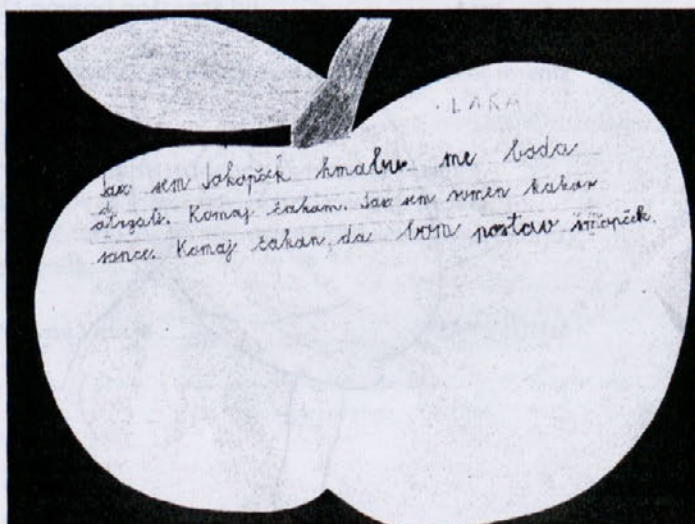 LARA
Jaz sem Jakopček hmalu me boda
atrgali. Komaj čakam. Jaz sem rumen kakar
sonce. Komaj čakan, da bom postav šmopček.